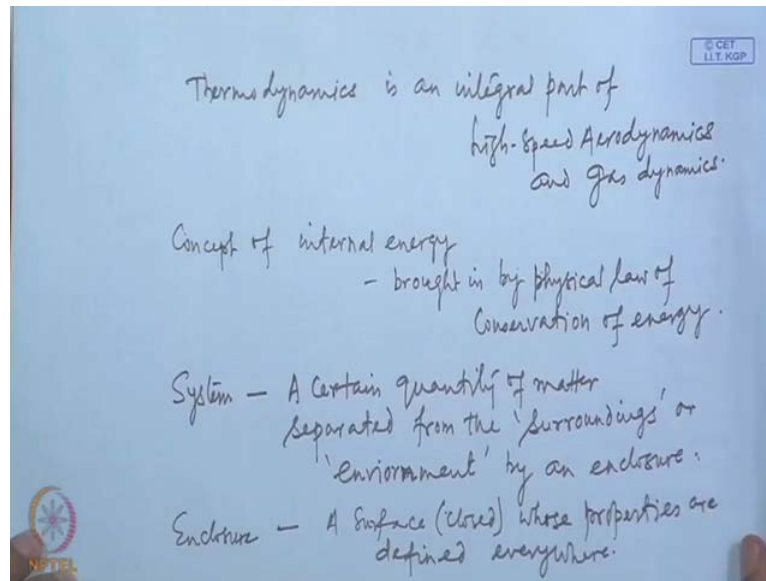 © CET
I.I.T. KGP
Thermodynamics is an integral part of
high-speed Aerodynamics
and gas dynamics.
Concept of internal energy
- brought in by physical law of
Conservation of energy.
System — A certain quantity of matter
separated from the 'surroundings' or
'enviornment' by an enclosure.
Enclosure — A surface (closed) whose properties are
defined everywhere.
NPTEL